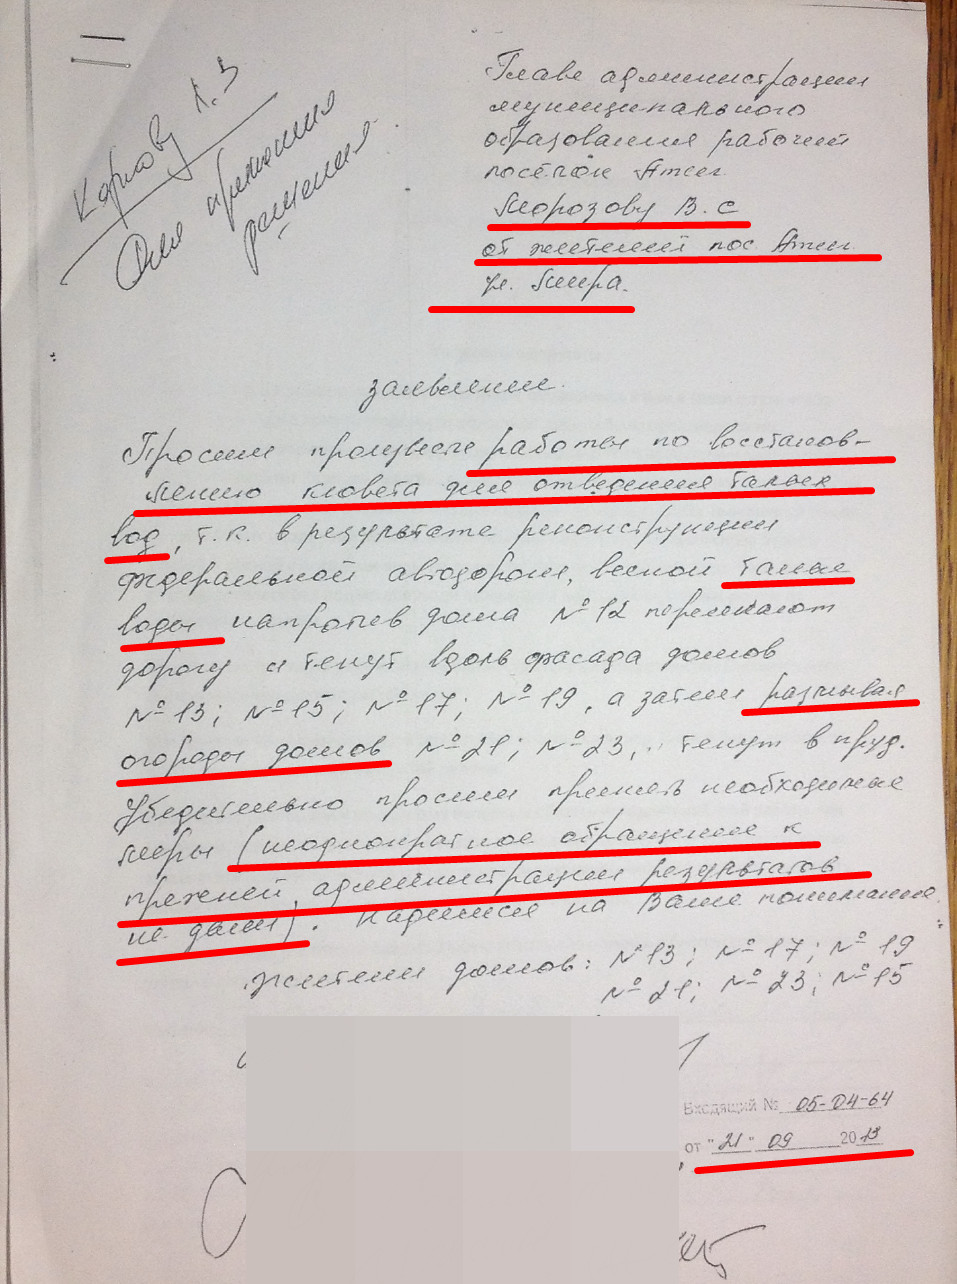 Карпову А.З
Для принятия
решения
Главе администрации
муниципального
образования рабочий
посёлок Атиг
Морозову В.С
от жителей пос. Атиг
ул. Мира.
заявление.
Просим произвести работы по восстанов-
лению кювета для отведения талых
вод, т.к. в результате реконструкции
федеральной автодороги, весной талые
воды напротив дома №12 пересекают
дорогу и текут вдоль фасада домов
№13; №15; №17; №19, а затем размывая
огороды домов №21; №23, текут в пруд.
Убедительно просим принять необходимые
меры (неоднократное обращение к
прежней администрации результатов
не дали). Надеемся на Ваше понимание.
Жители домов: №13; №17; №19
№21; №23; №15
Входящий № 05-04-64
от "21" 09 2013